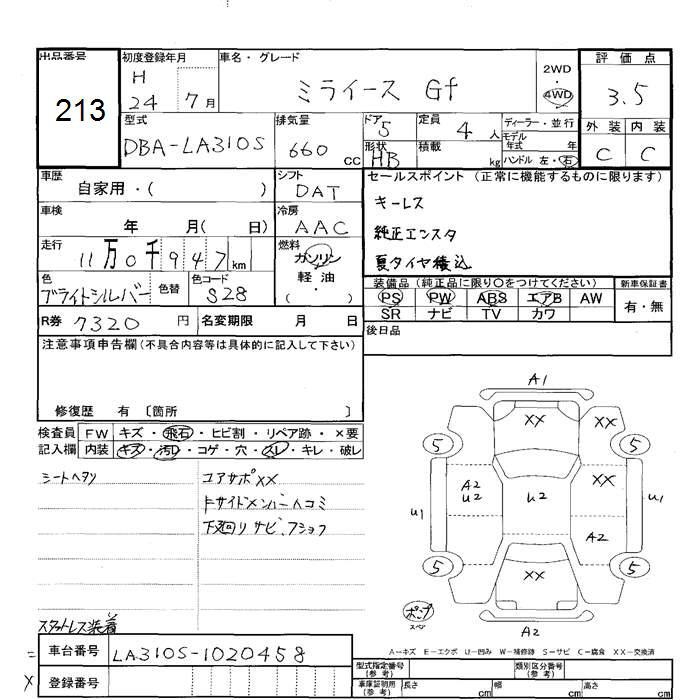 出品番号 初度登録年月 車名・グレード 評価点
213
H 24 7月
ミライース Gf
2WD・4WD
3.5
型式 排気量 ドア 定員 ディーラー・並行 外装 内装
DBA-LA310S 660 CC 5 4人 モデル年式 年 C C
形状 HB 積載 kg ハンドル 左・右
車歴 シフト セールスポイント (正常に機能するものに限ります)
自家用・( ) DAT
キーレス
車検 冷房
年 月( 日) AAC
純正エンスタ
走行 燃料
11万0千947km ガソリン
軽油
( )
夏タイヤ積込
色 色替 色コード 装備品 (純正品に限り〇をつけてください) 新車保証書
ブライトシルバー S28 PS PW ABS エアB AW 有・無
SR ナビ TV カワ
R券 7320円 名変期限 月 日 後日品
注意事項申告欄(不具合内容等は具体的に記入して下さい)
修復歴 有 〔箇所 〕
検査員 FW キズ・飛石・ヒビ割・リペア跡・×要
記入欄 内装 キズ・汚れ・コゲ・穴・スレ・キレ・破レ
シートヘタリ コアサポXX
Fサイドメンバーヘコミ
下廻りサビ、フショク
スタットレス装着
A1
XX XX
5 5
A2 U2 U2 XX
U1 U1
A2
5 5
XX
ポンプ スペア
A2
A-キズ E-エクボ U-凹み W-補修跡 S-サビ C-腐食 XX-交換済
= 車台番号 LA310S-1020458
× 登録番号
型式指定番号(参考) 類別区分番号(参考)
車庫証明用(参考) 長さ cm 幅 cm 高さ cm